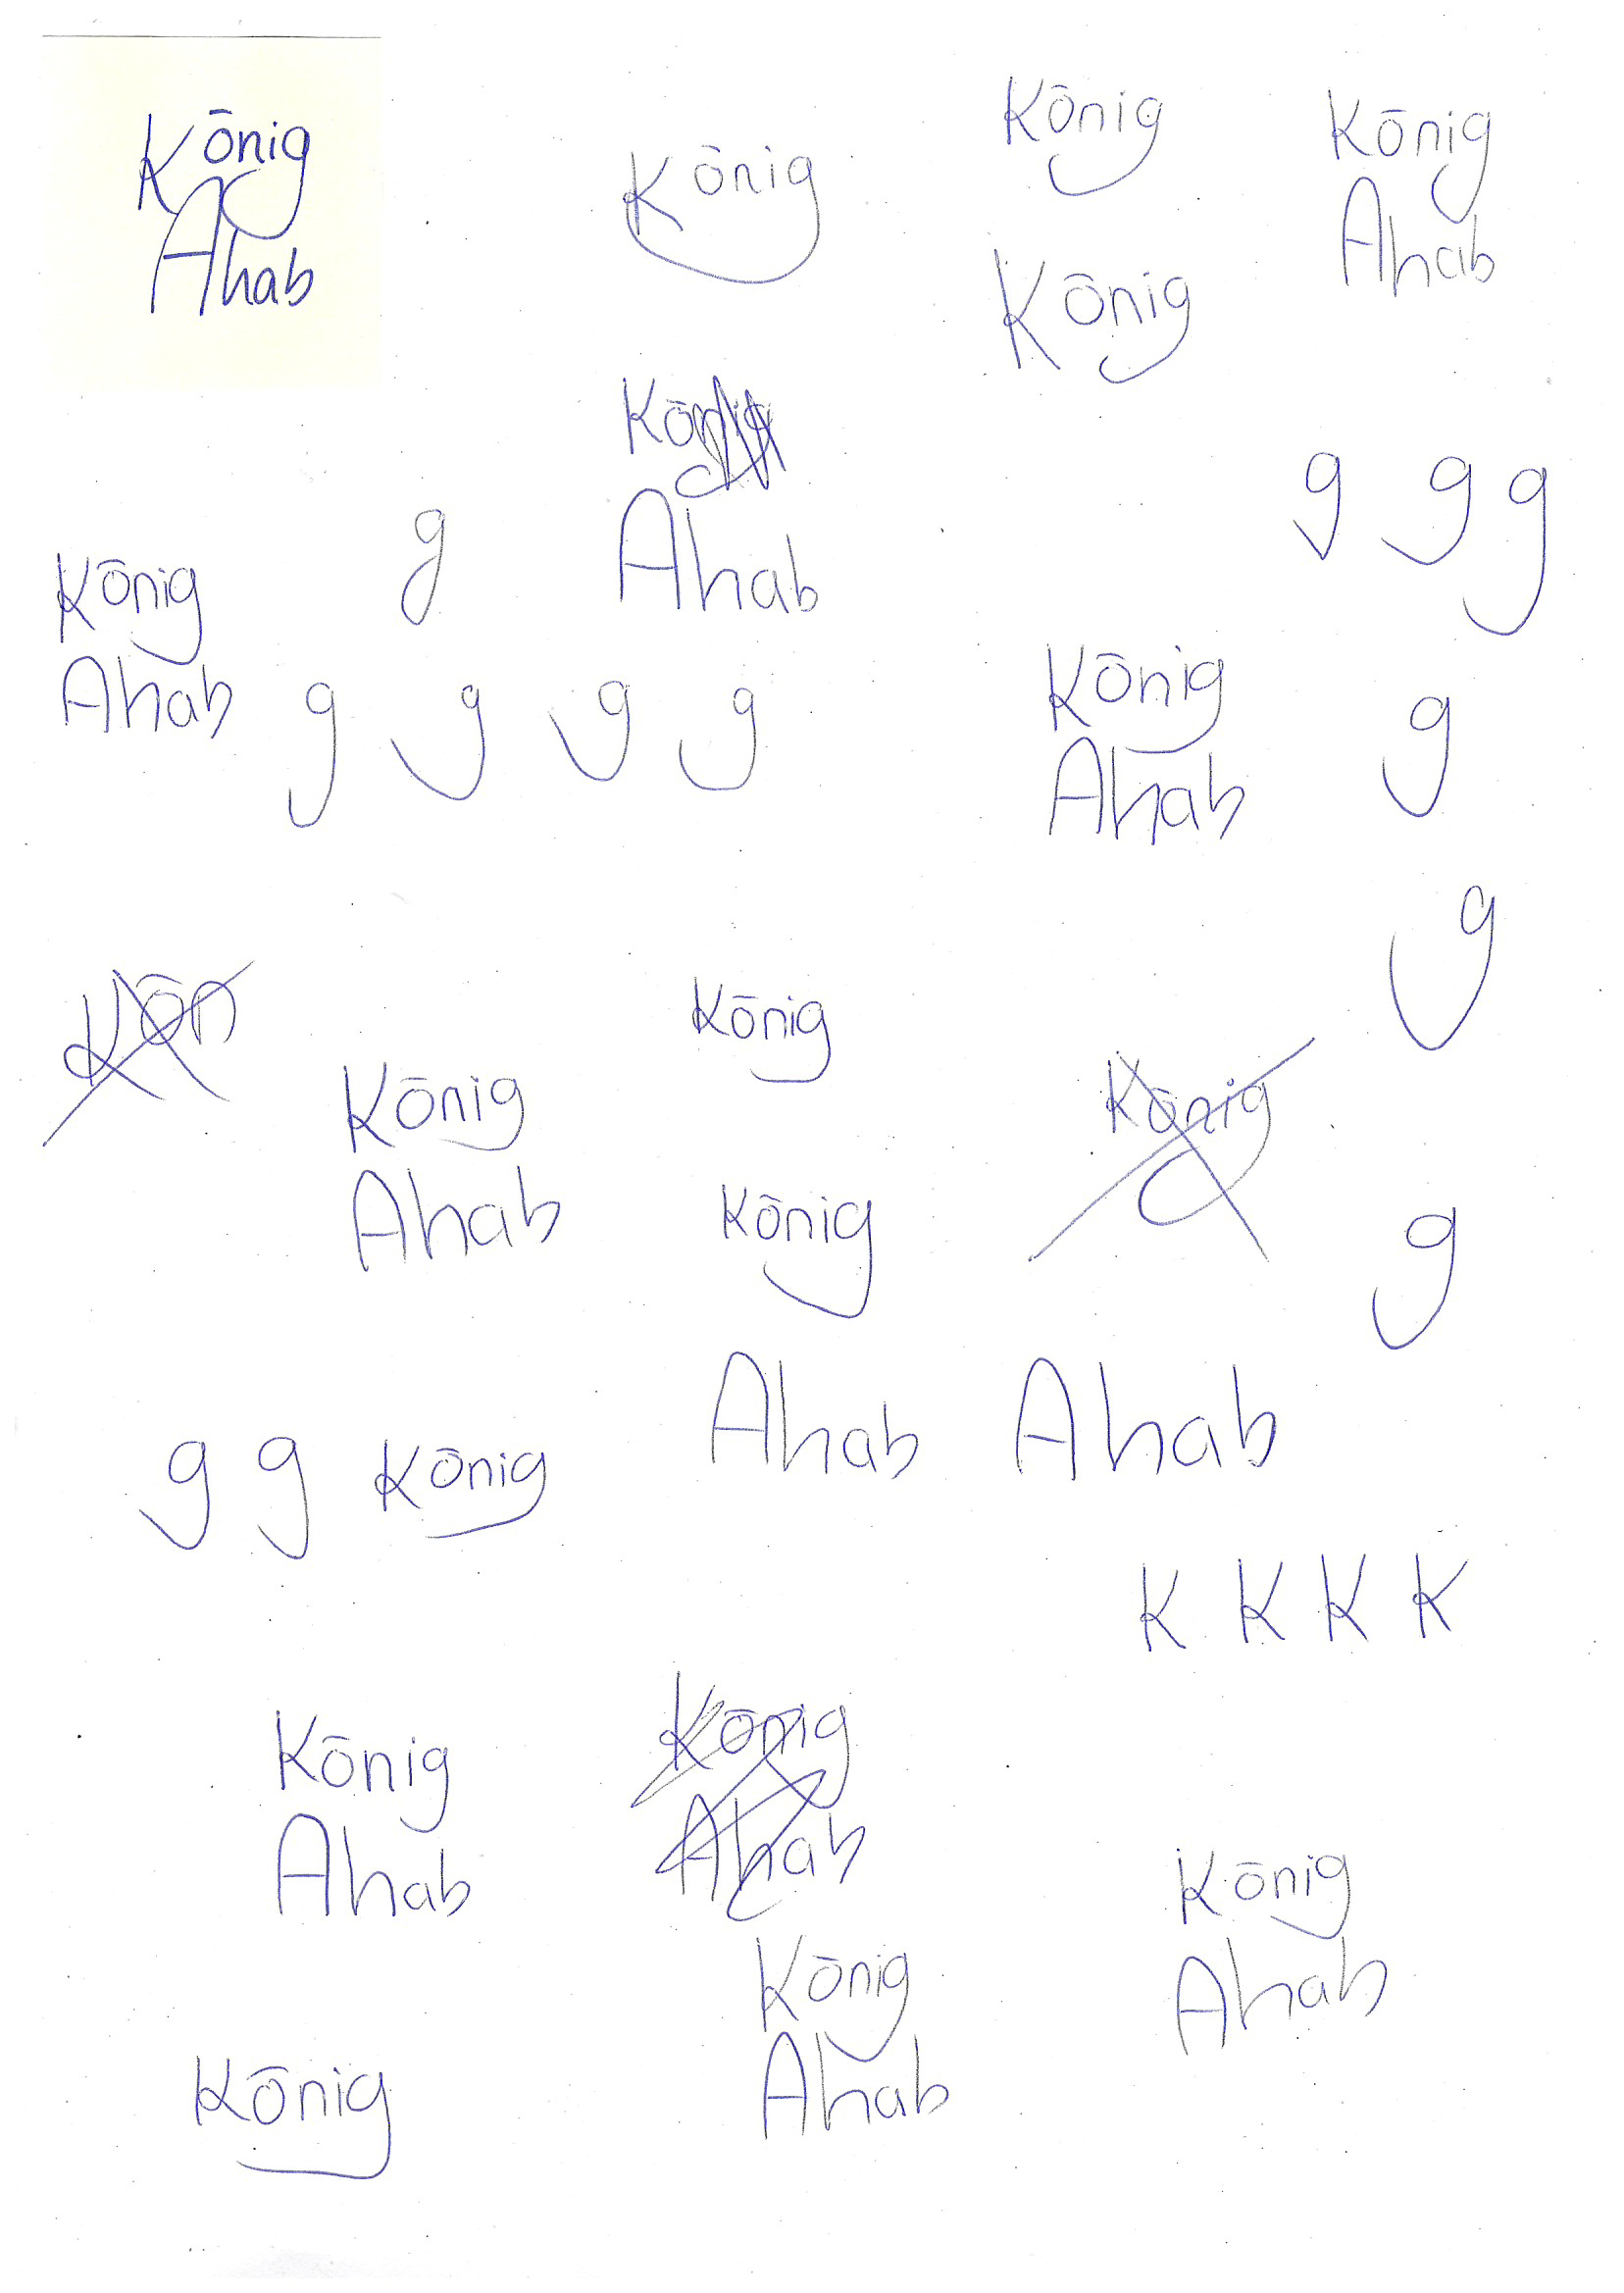 Kōnig
Ahab
Kōnig
Kōnig
Kōnig
Ahab
Kōnig
Kōnig
Ahab
g g g
g
Kōnig
Ahab
g g g g
Kōnig
Ahab
g
g
Kōn
Kōnig
Kōnig
Ahab
Kōnig
Kōnig
g
Ahab
Ahab
g g
Kōnig
K K K K
Kōnig
Ahab
Kōnig
Ahab
Kōnig
Ahab
Kōnig
Ahab
Kōnig